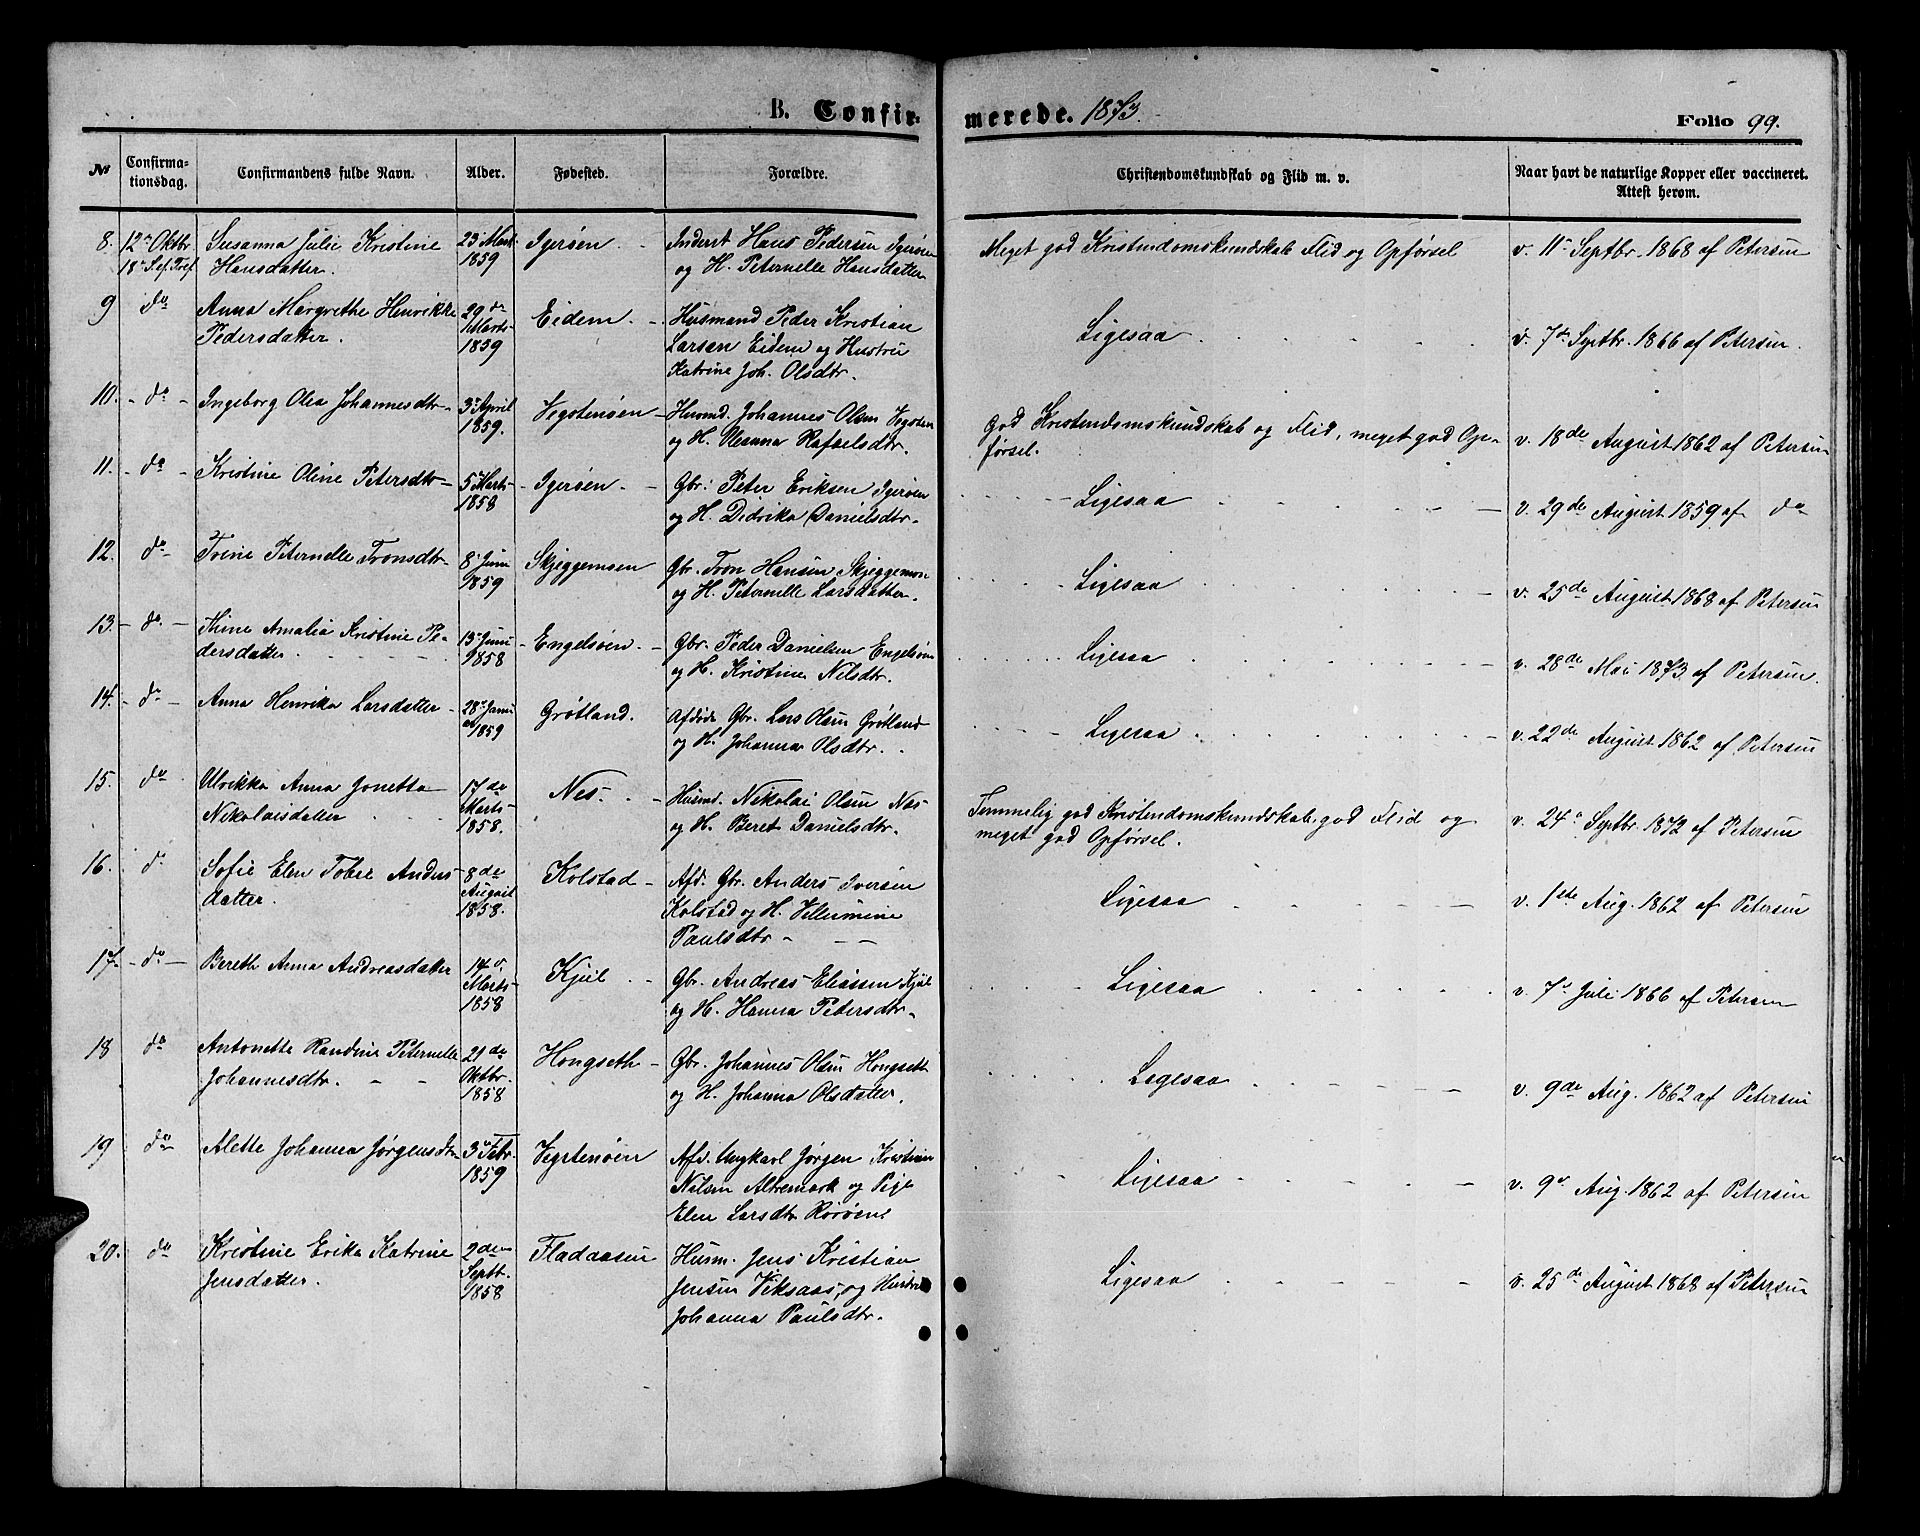 B. Confirmerede. 1873.
Folio 99.
№
Confirmationsdag.
Confirmandens fulde Navn.
Alder.
Fødested.
Forældre.
Christendomskundskab og Flid m. v.
Naar havt de naturlige Kopper eller vaccineret. Attest herom.
8. 12te Oktbr. Susanna Julie Kristine 23 Mart Igerøen Inderst Hans Pedersen Igerøen Meget god Kristendomskundskab Flid og Opførsel v. 11te Septbr. 1868 af Petersen
18de S. ef. Tref Hansdatter. 1859 og H. Peternelle Hansdatter
9 do Anna Margrethe Henrikke 29de Eidem Husmand Peder Kristian Ligesaa v. 7de Septbr. 1866 af Petersen.
Pedersdatter. Marts 1859 Larsen Eidem og Hustru
Katrine Joh. Olsdtr.
10. do Ingeborg Olea Johannesdtr 3 April 1859. Vegstenøen Husmd. Johannes Olsen Vegsten God Kristendomskundskab og Flid, meget god Op- v. 18de August 1862 af Petersen
og H. Oleanna Rafaelsdtr. førsel.
11. do Kristine Oline Petersdtr 5 Marts 1858 Igerøen. Gbr. Peter Eriksen Igerøen Ligesaa v. 29de August 1859 af do
og H. Didrika Danielsdtr.
12. do Trine Peternelle Tronsdtr 8 Juni 1859 Skjeggemoen Gbr. Tron Hansen Skjeggemon Ligesaa v. 25de August 1868 af Petersen
og H. Peternelle Larsdatter.
13. do. Thine Amalia Kristine Pe- 13 Juni 1858 Engelsøen. Gbr. Peder Danielsen Engelsøen Ligesaa v. 28de Mai 1873 af Petersen.
dersdatter og H. Kristine Nilsdtr.
14. do Anna Henrika Larsdatter 28 Januar 1859 Grøtland. Afdøde Gbr. Lars Olsen Grøtland Ligesaa v. 22de August 1862 af Petersen
og H. Johanna Olsdtr.
15. do Ulrikka Anna Jonetta 17de Marts 1858. Nes. Husmd. Nikolai Olsen Nes Temmelig god Kristendomskundskab, god Flid og v. 24de Septbr. 1872 af Petersen
Nikolaisdatter og H. Beret Danielsdtr. meget god Opførsel.
16. do Sofie Elen Tobie Anders- 8de August 1858. Kolstad Afd. Gbr. Anders Iversen Ligesaa v. 1ste Aug. 1862 af Petersen
datter. Kolstad og H. Villumine
Paulsdtr
17. do Bereth Anna Andreasdatter 14 Marts 1858 Kjul Gbr. Andreas Eliassen Kjul Ligesaa v. 7de Juli 1866 af Petersen
og H. Hanna Pedersdtr.
18 do Antonette Randine Peternelle 21de Oktbr. 1858 Hongseth Gbr. Johannes Olsen Hongseth Ligesaa v. 9de Aug. 1862 af Petersen
Johannesdtr. og H. Johanna Olsdatter.
19 do Alette Johanna Jørgensdtr 3 Febr. 1859 Vegstenøen Afd. Ungkarl Jørgen Kristian Ligesaa v. 9de Aug. 1862 af Petersen
Nilsen Altremark og Pige
Elen Larsdtr Rørøen.
20. do Kristine Erika Katrine 2den Septbr. 1858 Fladaasen Husm. Jens Kristian Ligesaa v. 25de August 1868 af Petersen
Jensdatter. Jensen Viksaas, og Hustru
Johanna Paulsdtr.